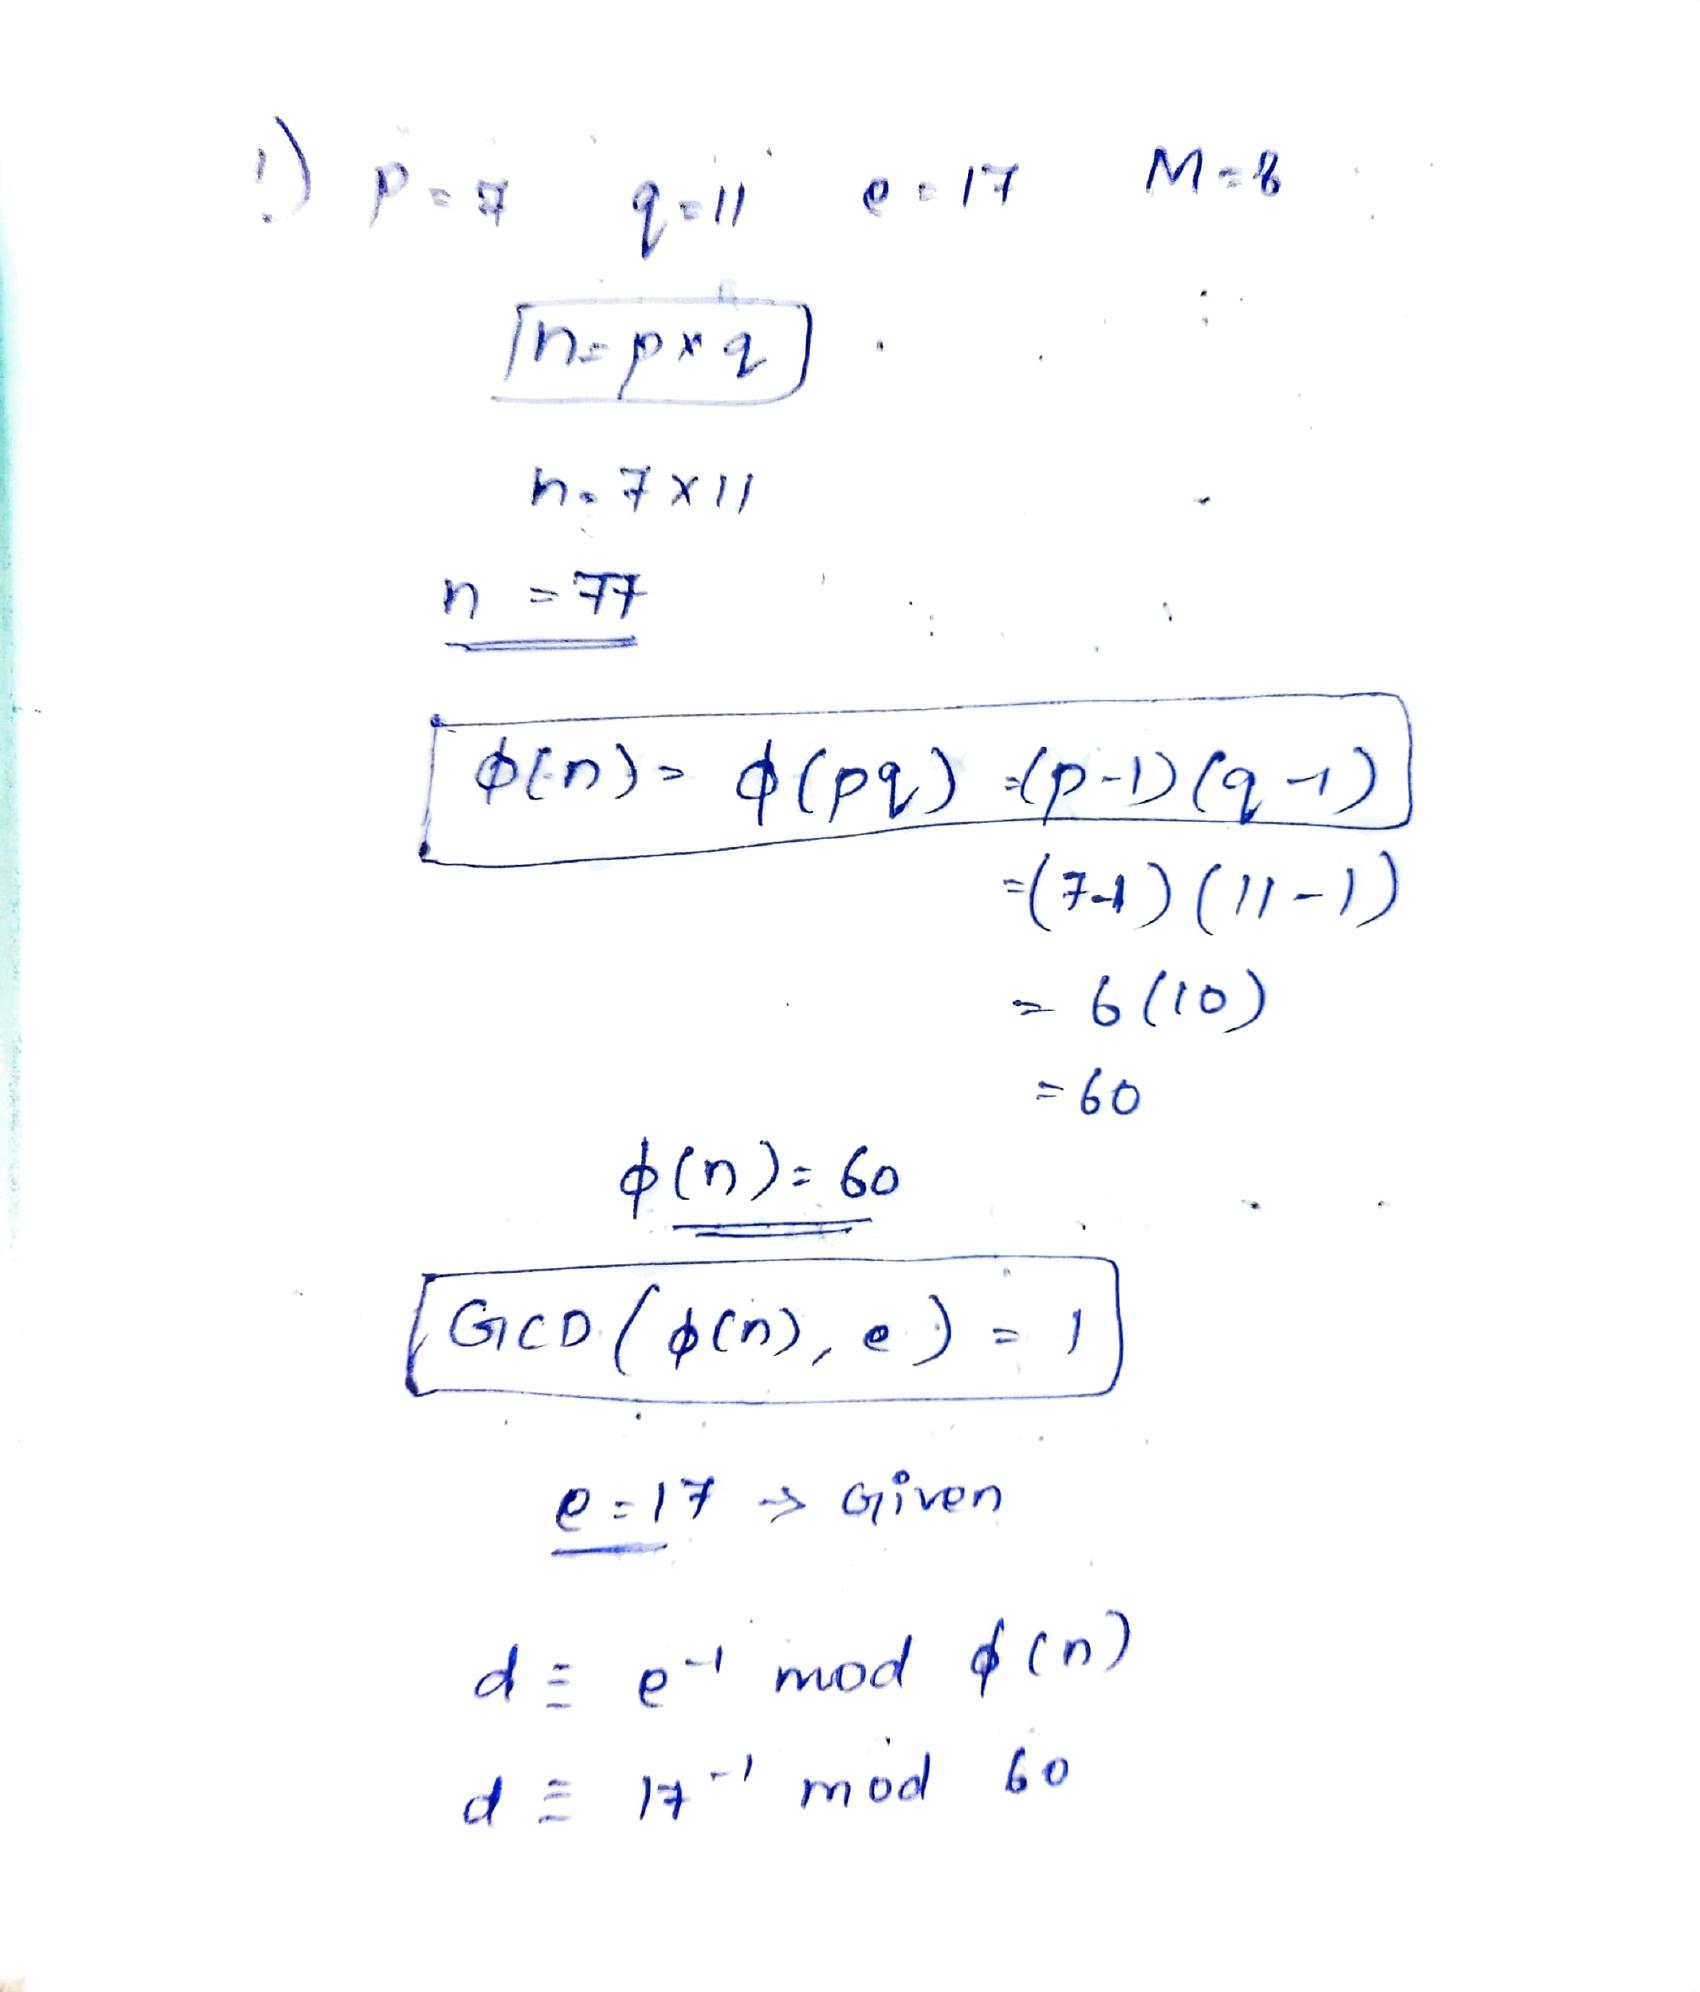 1) p=7 q=11 e=17 M=8
n=p×q
n=7×11
n=77
ϕ(n)=ϕ(pq)=(p-1)(q-1)
=(7-1)(11-1)
=6(10)
=60
ϕ(n)=60
GCD(ϕ(n),e)=1
e=17→Given
d≡e⁻¹ mod ϕ(n)
d≡17⁻¹ mod 60